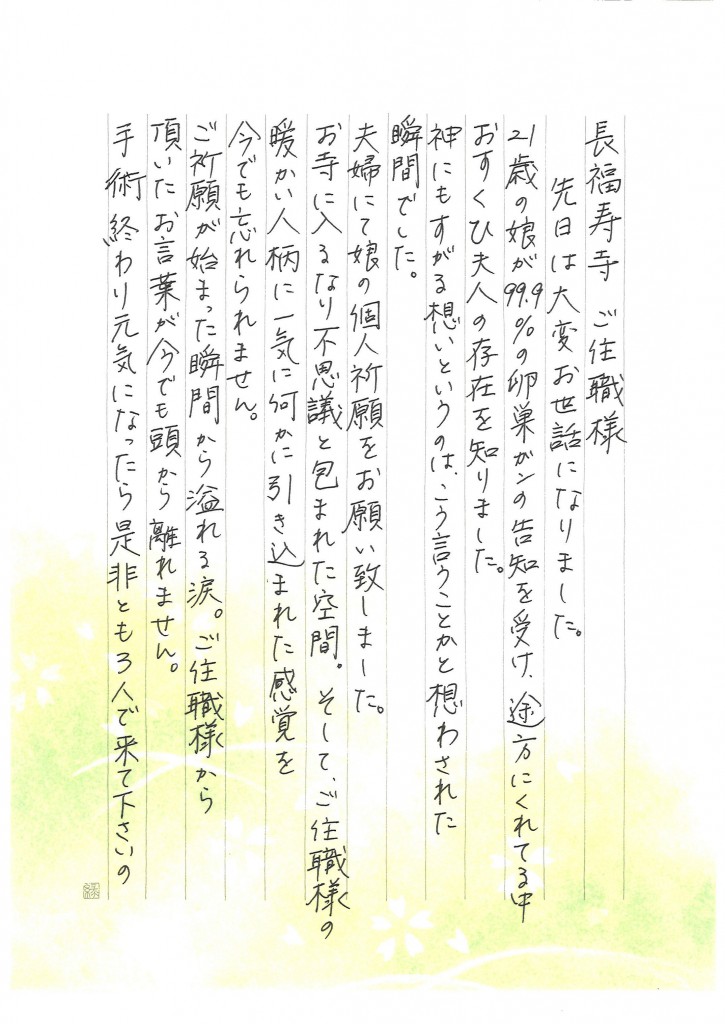 長福寿寺 ご住職様
先日は大変お世話になりました。
21歳の娘が99.9%の卵巣ガンの告知を受け、途方にくれてる中
おすくひ夫人の存在を知りました。
神にもすがる想いというのは、こう言うことかと想わされた
瞬間でした。
夫婦にて娘の個人祈願をお願い致しました。
お寺に入るなり不思議と包まれた空間。そして、ご住職様の
暖かい人柄に一気に何かに引き込まれた感覚を
今でも忘れられません。
ご祈願が始まった瞬間から溢れる涙。ご住職様から
頂いたお言葉が今でも頭から離れません。
手術終わり元気になったら是非とも3人で来て下さいの